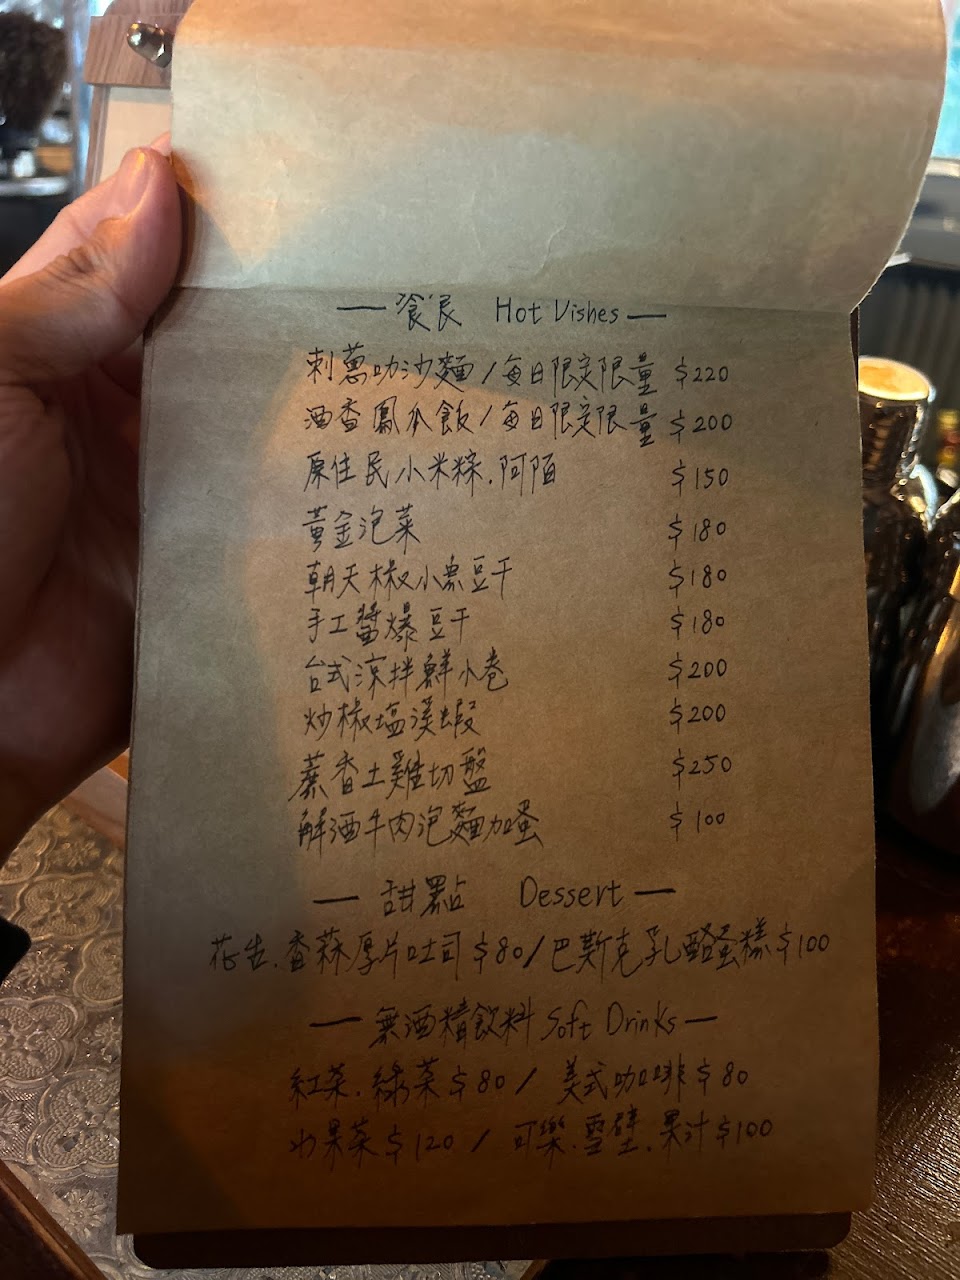 — 食 Hot Vishes —
刺蔥叻沙麵/每日限定限量 $220
酒香鳳爪飯/每日限定限量 $200
原住民小米粽.阿陌 $150
黃金泡菜 $180
朝天椒小魚豆干 $180
手工醬爆豆干 $180
台式涼拌鮮小卷 $200
炒椒塩溪蝦 $200
蔗香土雞切盤 $250
解酒牛肉泡麵加蛋 $100
— 甜點 Dessert —
花生.香蒜厚片吐司 $80/巴斯克乳酪蛋糕 $100
— 無酒精飲料 Soft Drinks —
紅茶.綠茶 $80 / 美式咖啡 $80
水果茶 $120 / 可樂.雪壁.果汁 $100